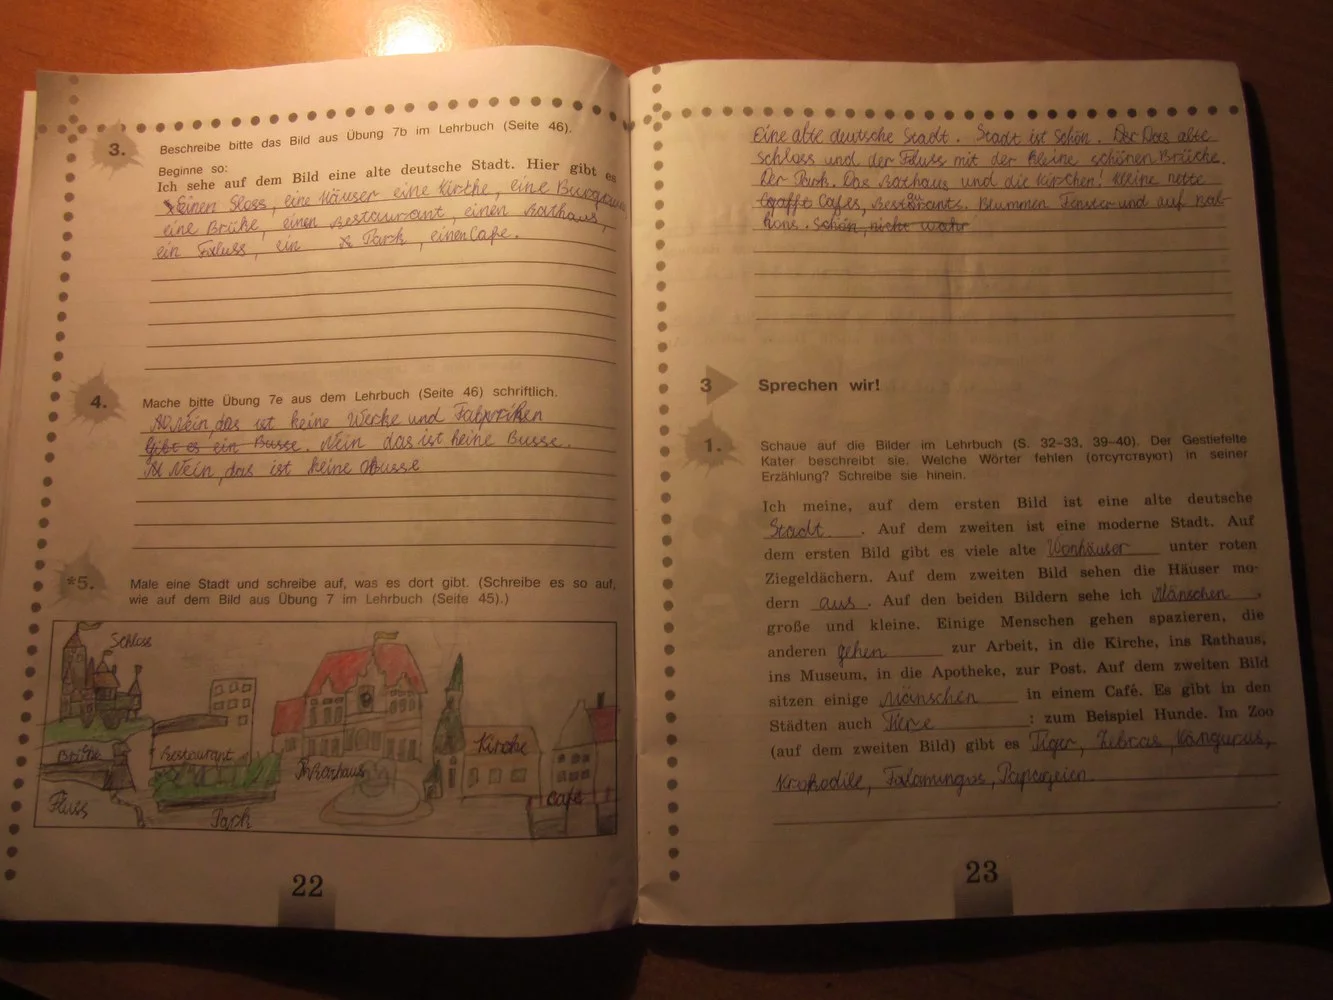 3. Beschreibe bitte das Bild aus Übung 7b im Lehrbuch (Seite 46).
Beginne so:
Ich sehe auf dem Bild eine alte deutsche Stadt. Hier gibt es
einen Sloss, eine Häuser eine Kirche, eine Burg
eine Brüke, einen Restaurant, einen Rathaus,
ein Faluss, ein Park, einen Cafe.
4. Mache bitte Übung 7e aus dem Lehrbuch (Seite 46) schriftlich.
Nein, das ist keine Werke und Fabriken
Gibt es ein Busse. Nein das ist keine Busse.
Nein, das ist keine Busse
*5. Male eine Stadt und schreibe auf, was es dort gibt. (Schreibe es so auf,
wie auf dem Bild aus Übung 7 im Lehrbuch (Seite 45).)
Schloss
Brüke
Restaurant
Rathaus
Kirche
Cafe
Fluss
Park
22
Eine alte deutsche Stadt. Stadt ist Schön. Der Das alte
schloss und der Faluss mit der kleine schönen Brücke.
Der Park. Das Rathaus und die Kirchen! Kleine nette
Cafes, Restaurants. Blummen Fenster und auf Bal-
kons. Schön, nicht wahr
3 Sprechen wir!
1. Schaue auf die Bilder im Lehrbuch (S. 32–33, 39–40). Der Gestiefelte
Kater beschreibt sie. Welche Wörter fehlen (отсутствуют) in seiner
Erzählung? Schreibe sie hinein.
Ich meine, auf dem ersten Bild ist eine alte deutsche
Stadt. Auf dem zweiten ist eine moderne Stadt. Auf
dem ersten Bild gibt es viele alte Wonhäuser unter roten
Ziegeldächern. Auf dem zweiten Bild sehen die Häuser mo-
dern aus. Auf den beiden Bildern sehe ich Mänschen,
große und kleine. Einige Menschen gehen spazieren, die
anderen gehen zur Arbeit, in die Kirche, ins Rathaus,
ins Museum, in die Apotheke, zur Post. Auf dem zweiten Bild
sitzen einige Mänschen in einem Café. Es gibt in den
Städten auch Tiere: zum Beispiel Hunde. Im Zoo
(auf dem zweiten Bild) gibt es Tiger, Zebras, Kangurus,
Krokodile, Falamingos, Papageien.
23